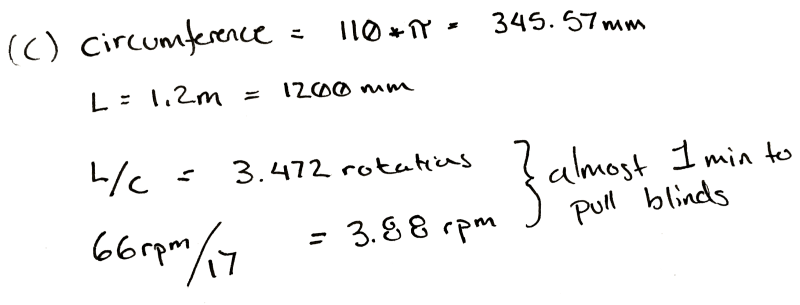 (C) Circumference = 110 * π = 345.57mm
L = 1.2m = 1200 mm
L/c = 3.472 rotations } almost 1 min to pull blinds
66rpm/17 = 3.88 rpm